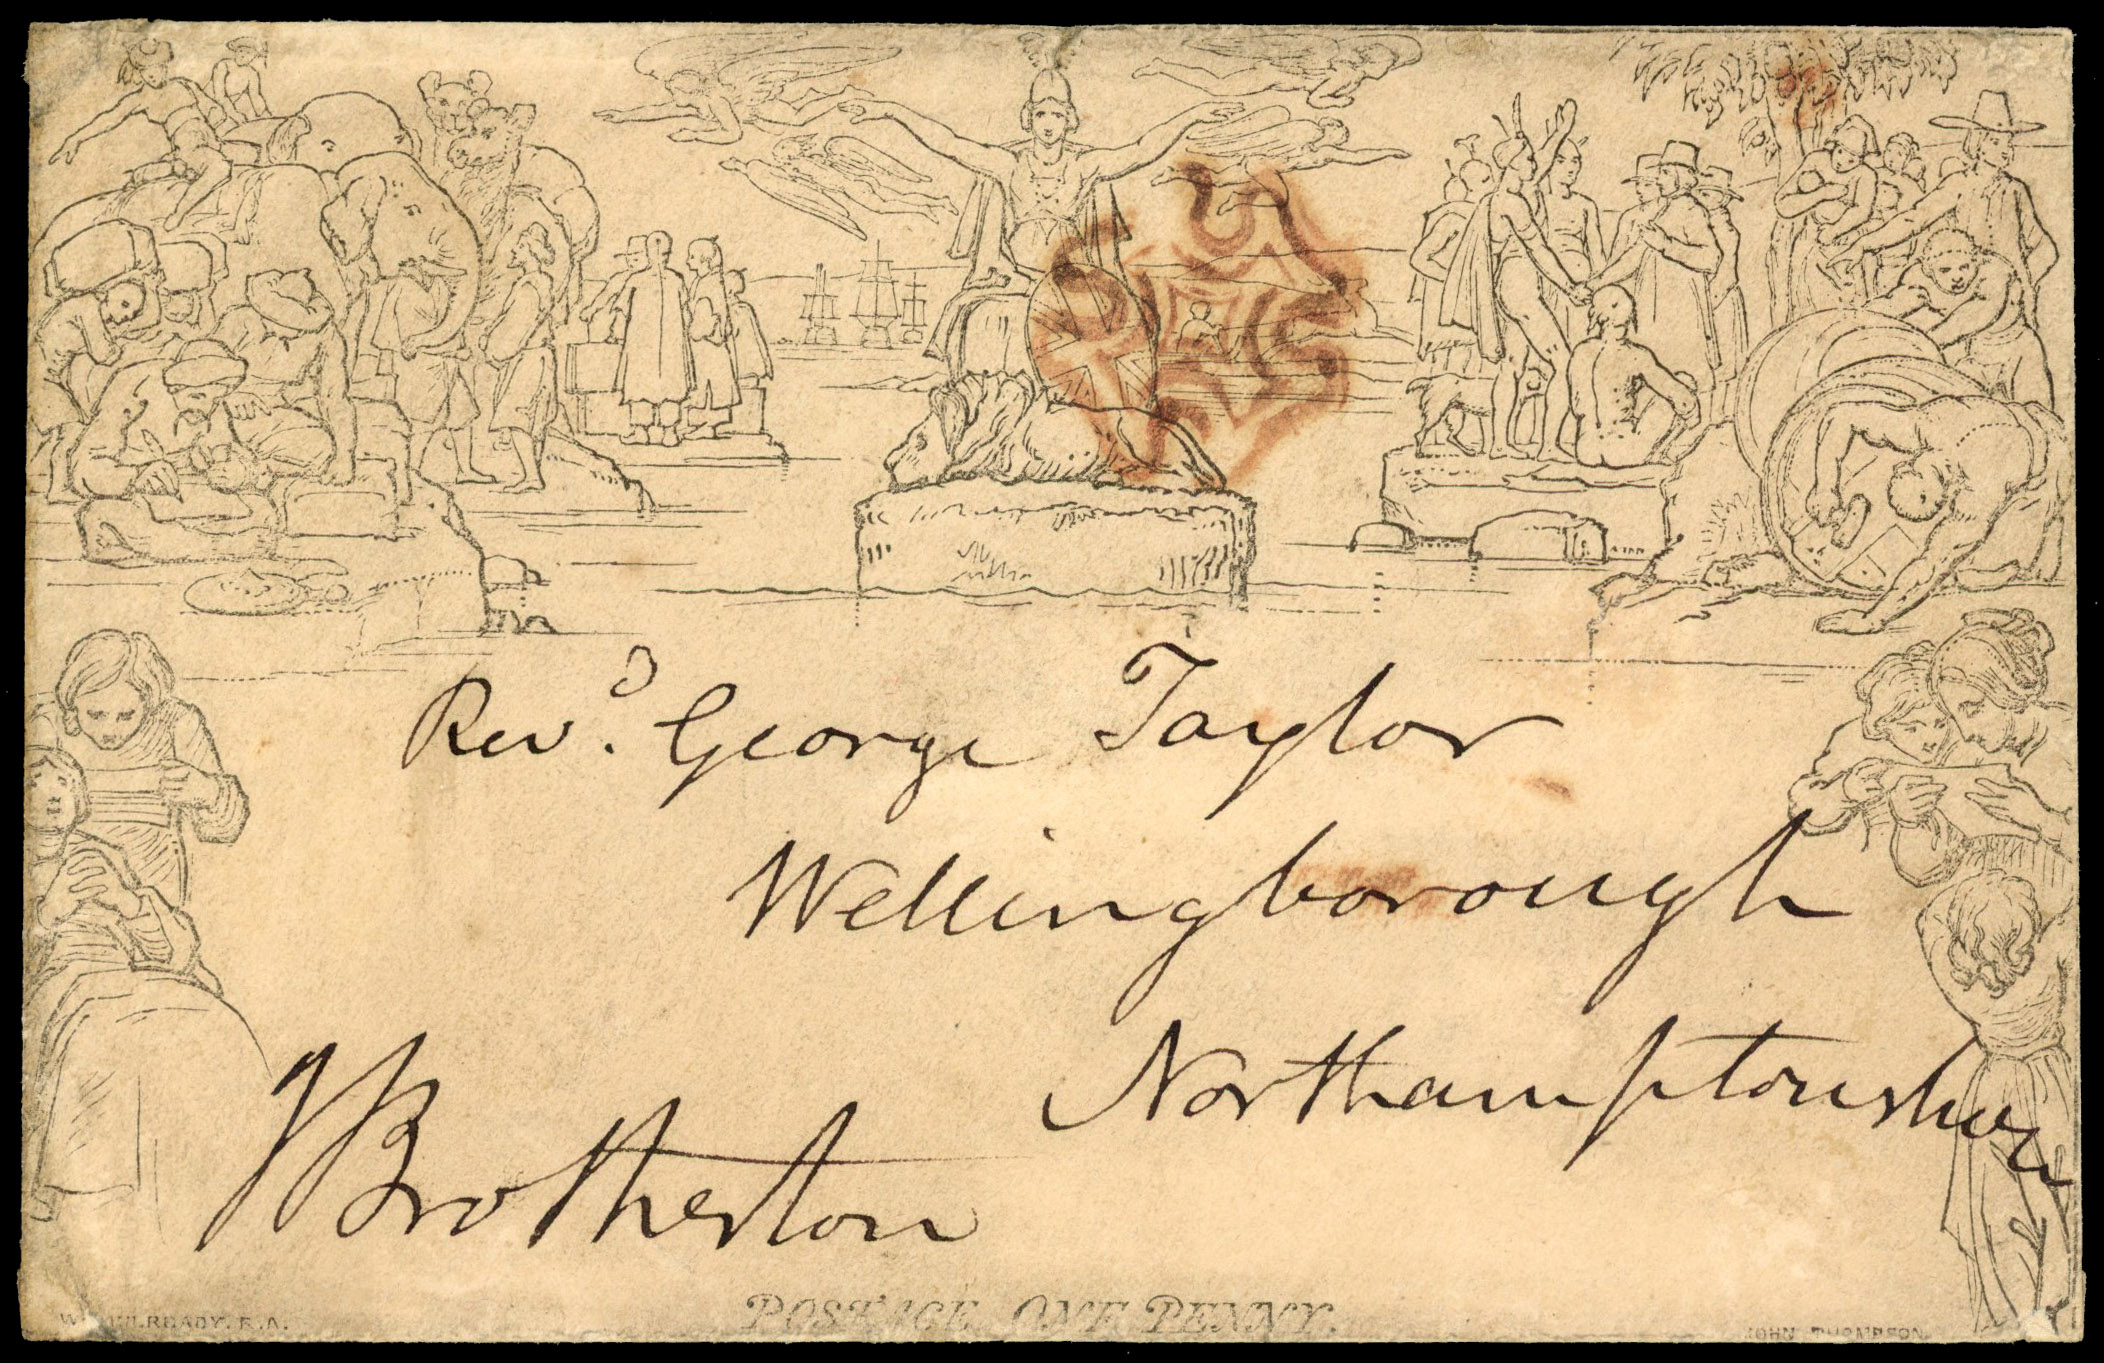 Revd. George Taylor
Wellingborough
Northamptonshire
J Brotherton
POSTAGE ONE PENNY.
W. MULREADY. R.A.
JOHN THOMPSON